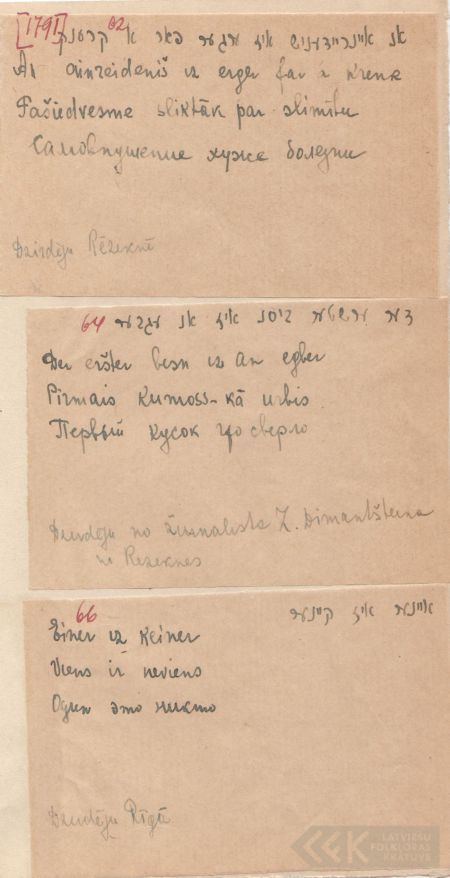 [1791] 62 אנ איינריידעניש איז ערגער פאר א קרענק
An ainreideniš iz erger far a krenk
Pašiedvesme sliktāk par slimību
Самовнушение хуже болезни
Dzirdēju Rēzeknē
64 דער ערשטער ביסנ איז אנ עגבער
Der eršter bisn iz an egber
Pirmais kumoss - kā urbis
Первый кусок что сверло
Dzirdēju no žurnālista Z. Dimantšteina
no Rēzeknes
66 איינער איז קיינער
Einer iz keiner
Viens ir neviens
Один это никто
Dzirdēju Rīgā
LATVIEŠU
FOLKLORAS
KRĀTUVE